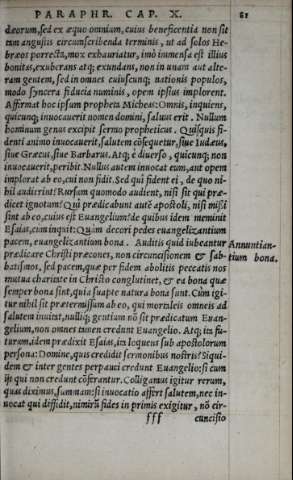 PARAPHR. CAP. X. 81
deorum, sed ex æquo omnium, cuius beneficentia non sit
tam angustis circumscribenda terminis, ut ad solos He-
bræos porrecta, mox exhauriatur, imò immensa est illius
bonitas, exuberans atq; exundans, non in unam aut alte-
ram gentem, sed in omnes cuiuscunq; nationis populos,
modo syncera fiducia numinis, opem ipsius implorent.
Affirmat hoc ipsum propheta Micheas: Omnis, inquiens,
quicunq; inuocauerit nomen domini, saluus erit. Nullum
hominum genus excipit sermo propheticus. Quisquis fi-
denti animo inuocauerit, salutem cōsequetur, siue Iudæus,
siue Græcus, siue Barbarus. Atq; è diuerso, quicunq; non
inuocauerit, peribit. Nullus autem inuocat eum, aut opem
implorat ab eo, cui non fidit. Sed quî fident ei, de quo ni-
hil audierint? Rursum quomodo audient, nisi sit qui præ-
dicet ignotum? Quî prædicabunt autē apostoli, nisi missi
sint ab eo, cuius est Euangelium? de quibus idem meminit
Esaias, cum inquit: Quàm decori pedes euangelizantium
pacem, euangelizantium bona. Auditis quid iubeantur
Annuntian-
prædicare Christi præcones, non circuncisionem & sab-
tium bona.
batismos, sed pacem, quæ per fidem abolitis peccatis nos
mutua charitate in Christo conglutinet, & ea bona quæ
semper bona sint, quia suapte natura bona sunt. Cùm igi-
tur nihil sit prætermissum ab eo, qui mortaleis omneis ad
salutem inuitat, nulliq; gentium nō sit prædicatum Euan-
gelium, non omnes tamen credunt Euangelio. Atq; ita fu-
turum, idem prædixit Esaias, ita loquens sub apostolorum
persona: Domine, quis credidit sermonibus nostris? Siqui-
dem & inter gentes perpauci credunt Euangelio: si cum
ijs qui non credunt cōferantur. Colligamus igitur rerum,
quas diximus, summam: si inuocatio affert salutem, nec in-
uocat qui diffidit, nimirū fides in primis exigitur, nō cir-
fff cuncisio